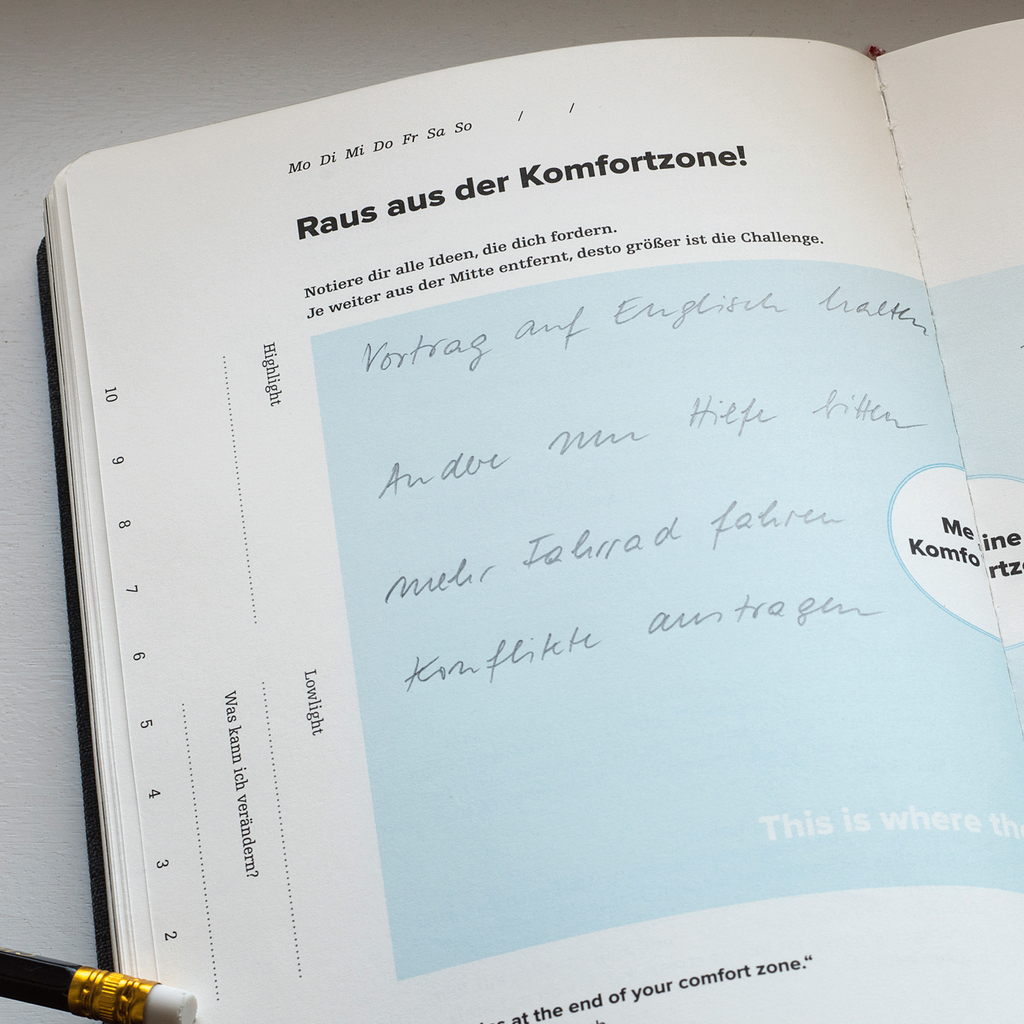 Mo Di Mi Do Fr Sa So / /
Raus aus der Komfortzone!
Notiere dir alle Ideen, die dich fordern.
Je weiter aus der Mitte entfernt, desto größer ist die Challenge.
Vortrag auf Englisch halten
Andere um Hilfe bitten
mehr Fahrrad fahren
Konflikte austragen
Meine
Komfortz
This is where the
at the end of your comfort zone.“
Highlight
Lowlight
Was kann ich verändern?
10
9
8
7
6
5
4
3
2